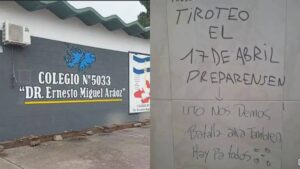 COLEGIO Nº5033
"DR. Ernesto Miguel Aráoz"
TIROTEO
EL
17 DE ABRIL
PREPARENSEN
Nos Demos
Batalla aca Tambien
Hay Pa todos